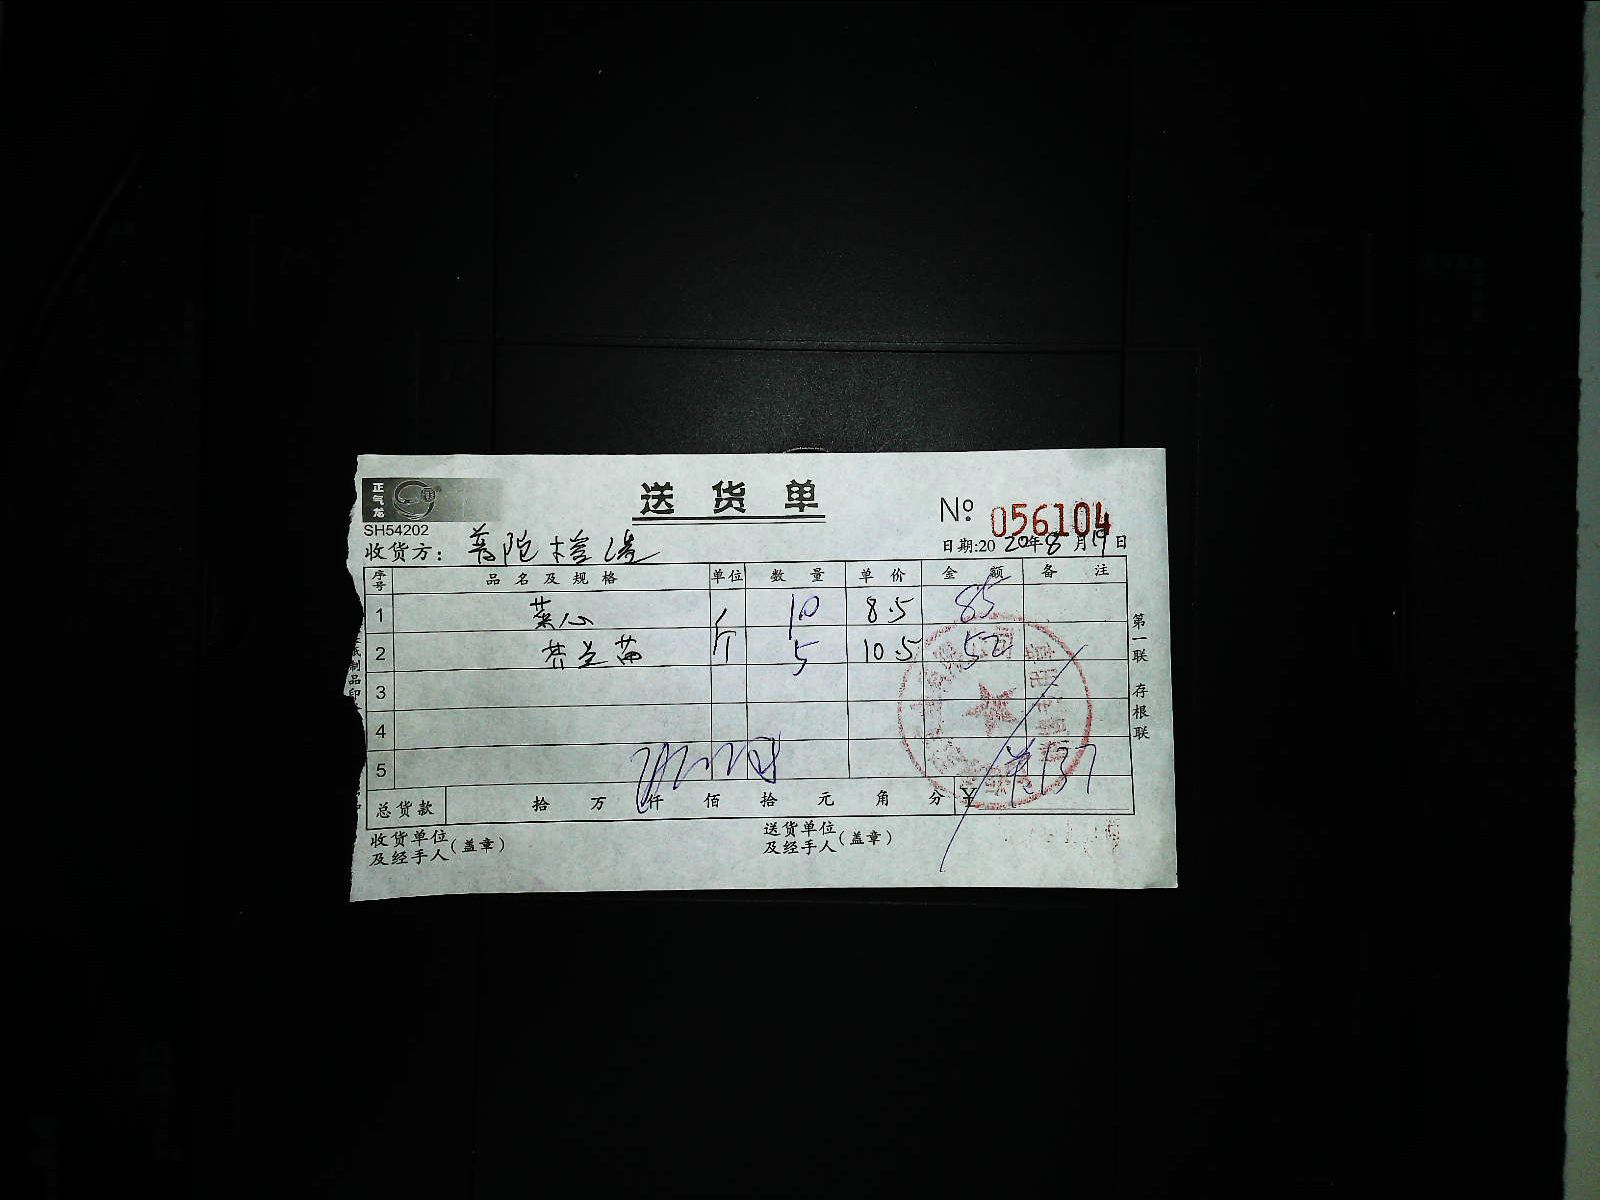 正气龙
送货单
No 056104
SH54202
收货方: 普陀
日期:2020年8月19日
序号 品名及规格 单位 数量 单价 金额 备注
1 菜心 斤 10 8.5 85
2 芥兰苗 斤 5 10.5 52
3
4
5
单137
总货款 拾 万 仟 佰 拾 元 角 分 ¥
收货单位及经手人(盖章)
送货单位及经手人(盖章)
第一联 存根联